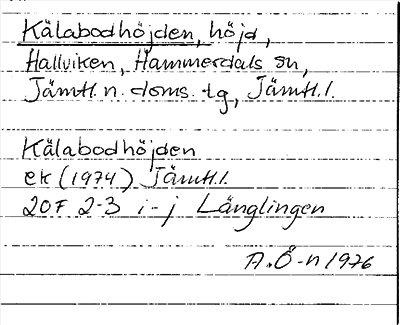 Kälabodhöjden, höjd,
Hallviken, Hammerdals sn,
Jämtl. n. doms. tg, Jämtl. l.
Kälabodhöjden
ek (1974) Jämtl. l.
20F 2-3 i-j Länglingen
A. Ö-n 1976